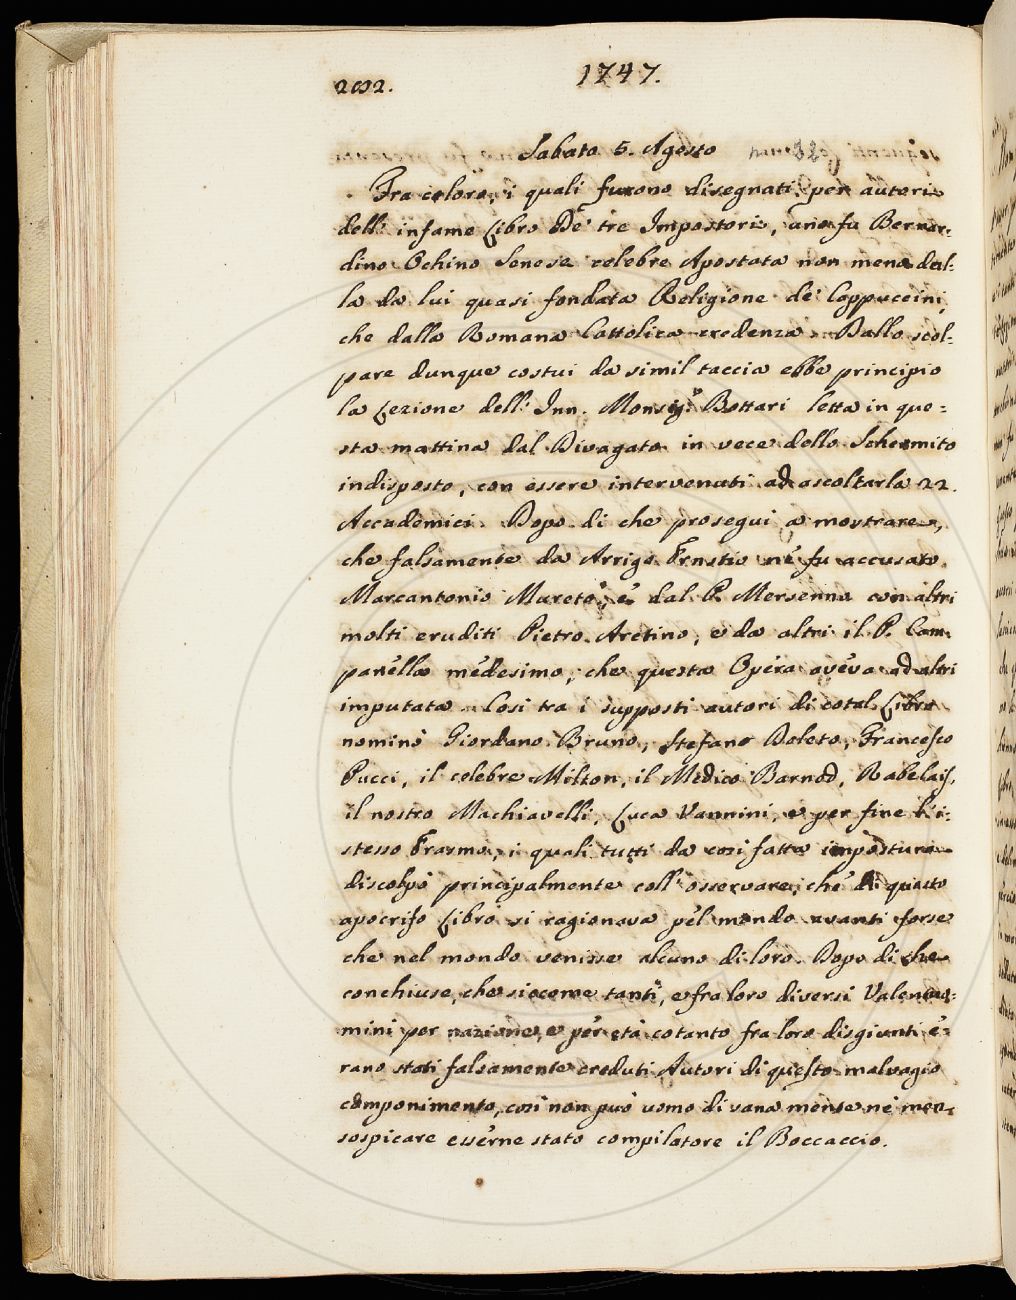 202.
1747.
Sabato 5. Agosto
Fra coloro, i quali furono disegnati per autori
dell' infame Libro De' tre Impostori, uno fu Bernar-
dino Ochino Senese celebre Apostata non meno dal-
la da lui quasi fondata Religione de' Cappuccini,
che dalla Romana Cattolica credenza. Dallo scol-
pare dunque costui da simil taccia ebbe principio
la Lezione dell' Inn. Monsig.r Bottari letta in que-
sta mattina dal Divagato in vece dello Schermito
indisposto, con essere intervenuti ad ascoltarla 22.
Accademici. Dopo di che prosegui a mostrare,
che falsamente da Arrigo Ernstio ne fu accusato
Marcantonio Mureto, e dal P. Mersenno con altri
molti eruditi Pietro Aretino, e da altri il P. Cam-
panella medesimo, che questa Opera aveva ad altri
imputata. Così tra i supposti autori di cotal Libro
nominò Giordano Bruno, Stefano Doleto, Francesco
Pucci, il celebre Milton, il Medico Barnod, Rabelais,
il nostro Machiavelli, Luca Vannini, e per fine l'i-
stesso Erasmo, i quali tutti da così fatta impostura
discolpò principalmente coll' osservare, che di questo
apocrifo Libro si ragionava pel mondo avanti forse
che nel mondo venisse alcuno di loro. Dopo di che
conchiuse, che siccome tanti, e fra loro diversi Valenuo-
mini per nazione, e per età cotanto fra loro disgiunti e-
rano stati falsamente creduti Autori di questo malvagio
componimento, così non può uomo di sana mente nè men
sospicare esserne stato compilatore il Boccaccio.